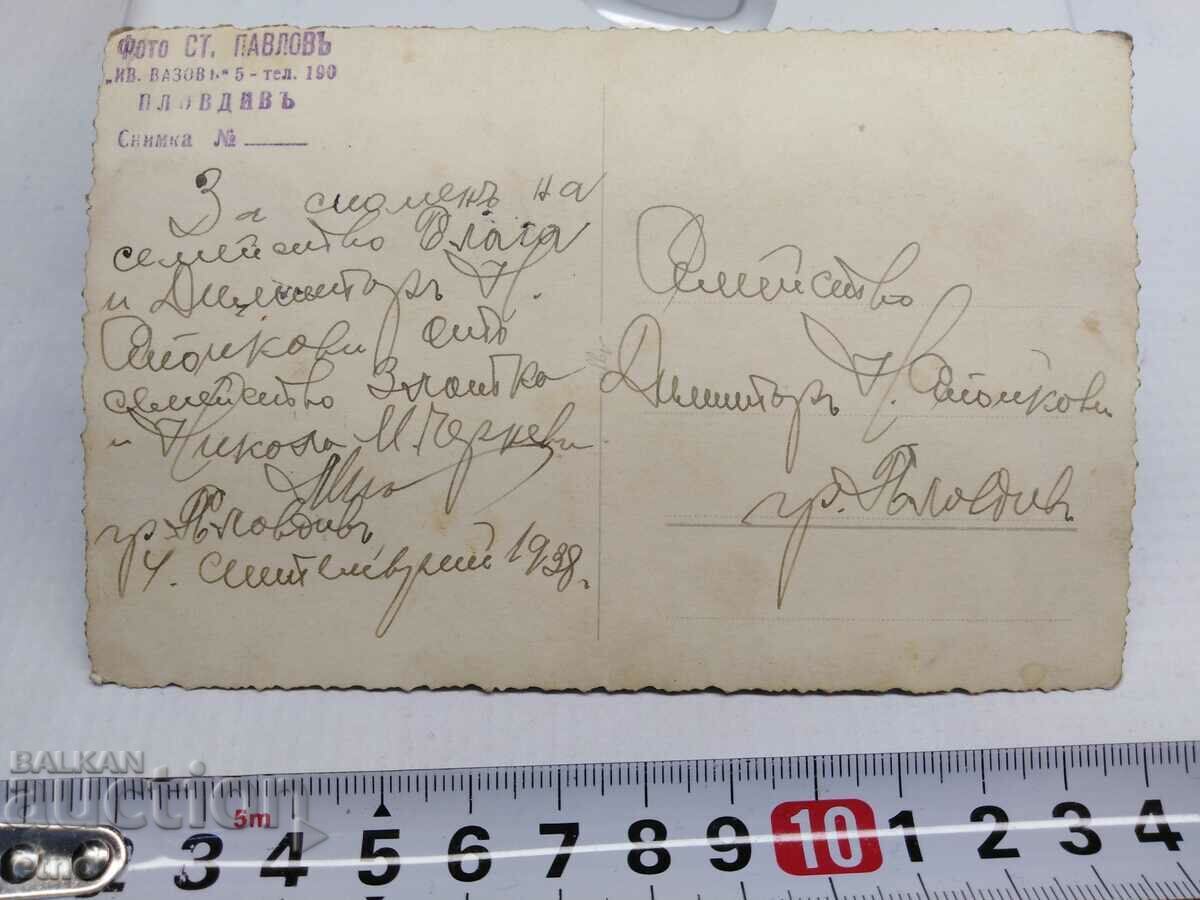 Фото СТ. ПАВЛОВЪ
„ИВ. ВАЗОВЪ“ 5 - тел. 190
ПЛОВДИВЪ
Снимка №
За споменъ на
семейство
и Димитъръ Н.
Стойкови отъ
семейство Златка
и Никола М. Черневи
гр. Пловдивъ
4. Септемврий 1938 г.
Семейство
Димитъръ Н. Стойкови
гр. Пловдивъ
BALKAN
auction
5m
2 3 4 5 6 7 8 9 10 1 2 3 4